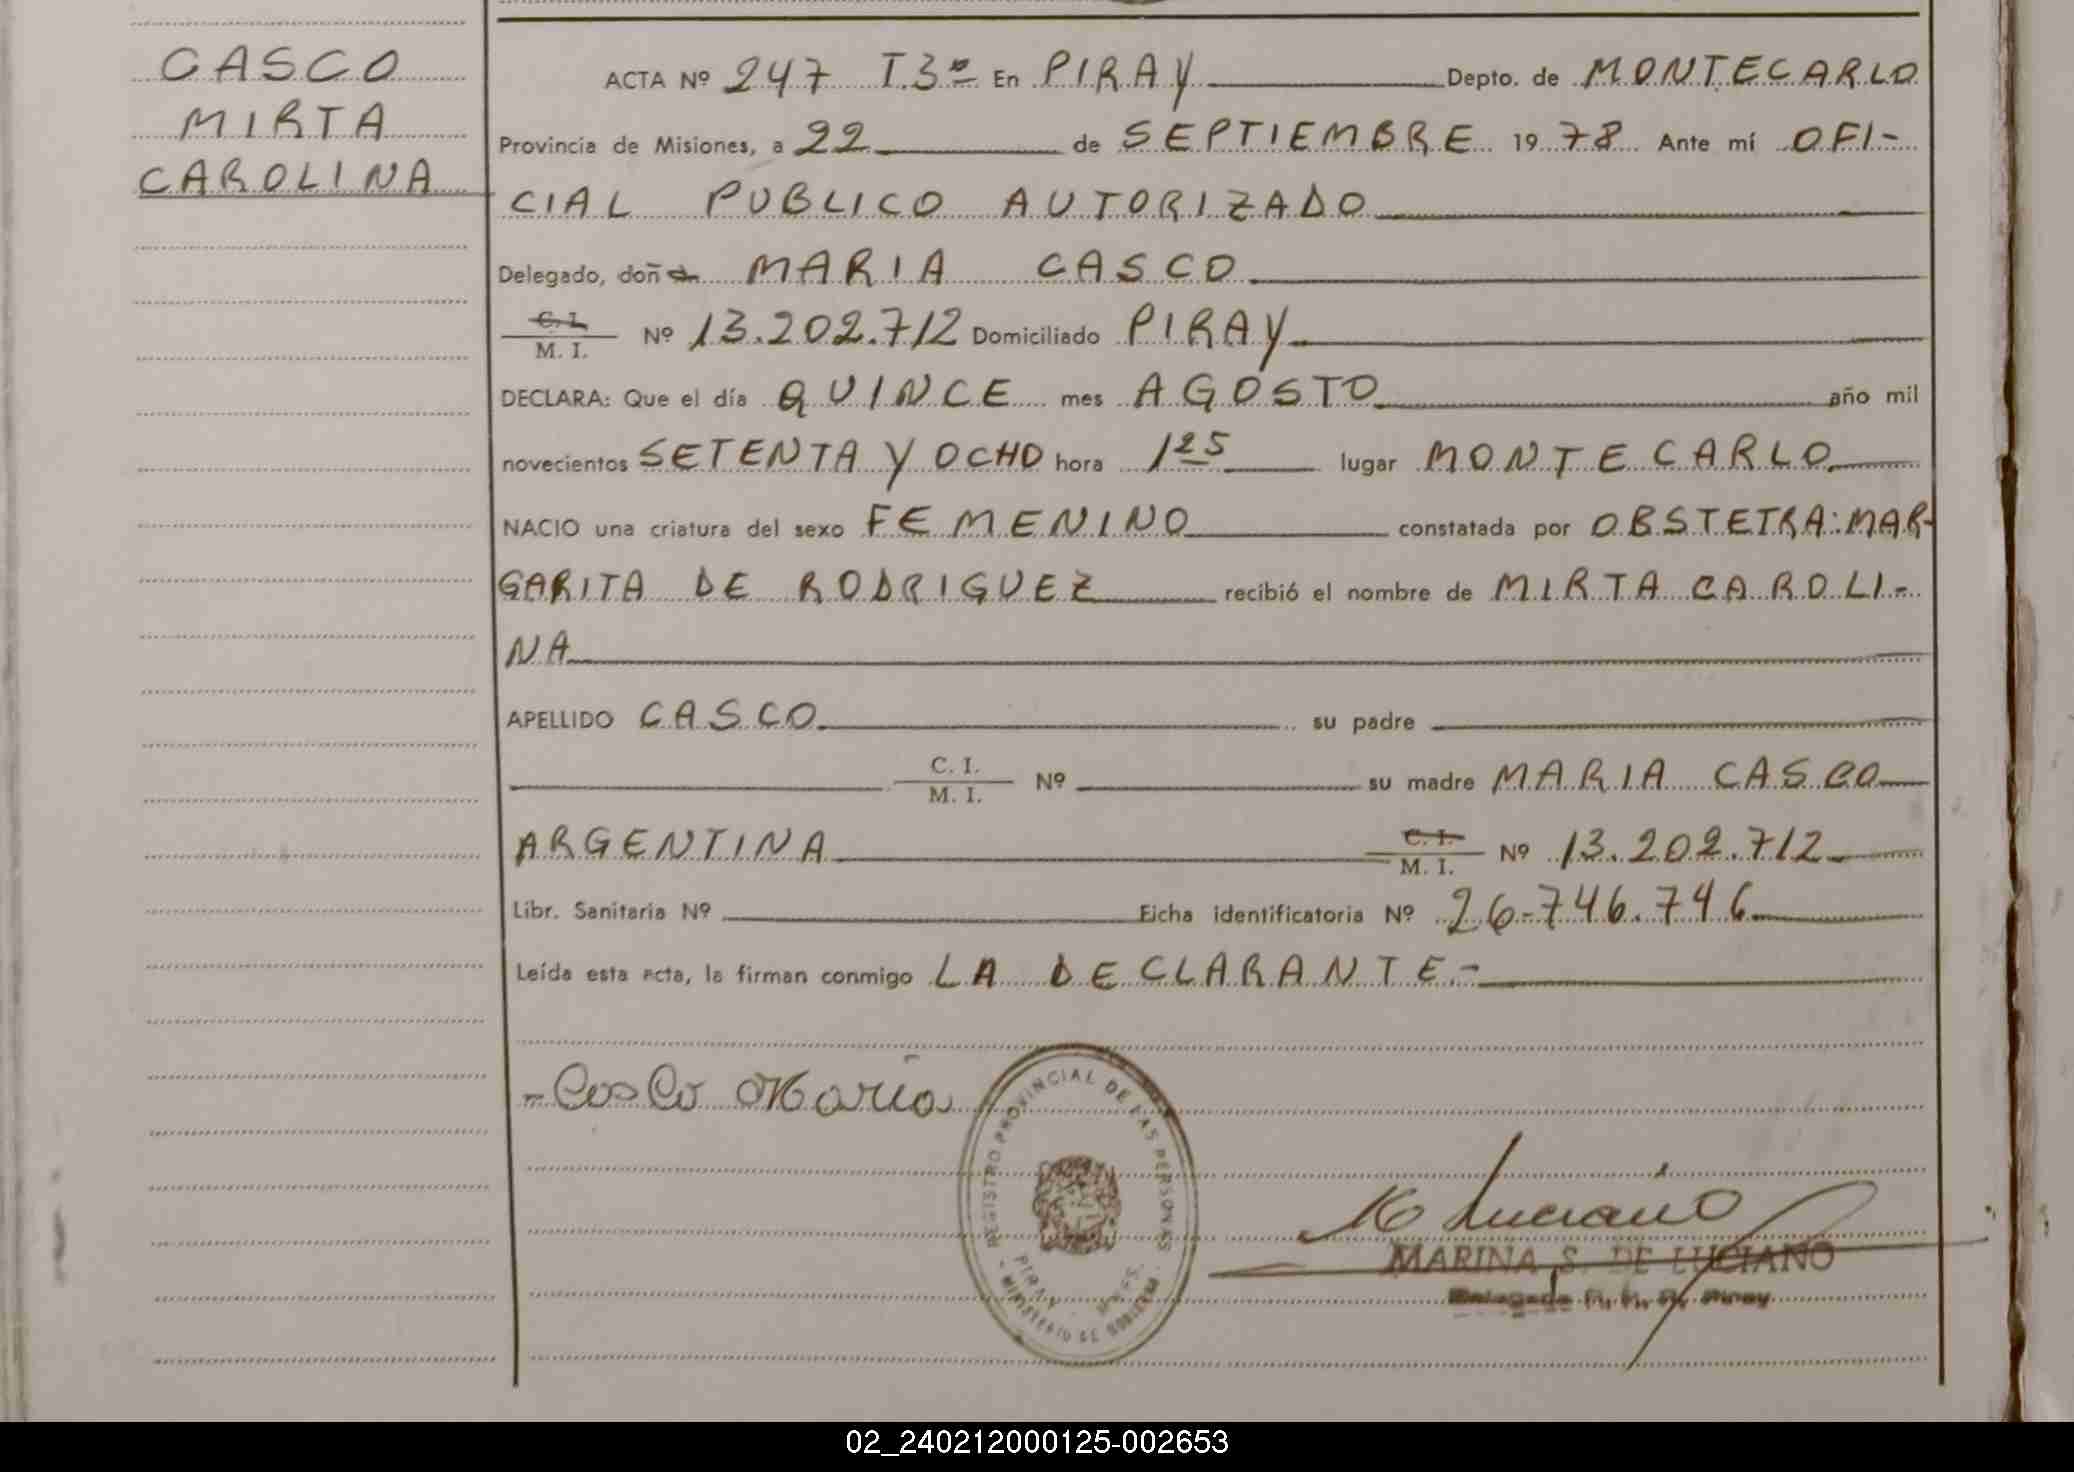 CASCO
MIRTA
CAROLINA
ACTA Nº 247 T 3º En PIRAY Depto. de MONTECARLO
Provincia de Misiones, a 22 de SEPTIEMBRE 19 78 Ante mí OFI-
CIAL PUBLICO AUTORIZADO
Delegado, doña MARIA CASCO
C. I.
M. I. Nº 13.202.712 Domiciliado PIRAY
DECLARA: Que el día QUINCE mes AGOSTO año mil
novecientos SETENTA Y OCHO hora 1 25 lugar MONTECARLO
NACIO una criatura del sexo FEMENINO constatada por OBSTETRA: MAR-
GARITA DE RODRIGUEZ recibió el nombre de MIRTA CAROLI-
NA
APELLIDO CASCO su padre
C. I.
M. I. Nº su madre MARIA CASCO
ARGENTINA C. I.
M. I. Nº 13.202.712
Libr. Sanitaria Nº Ficha identificatoria Nº 26-746.746
Leída esta acta, la firman conmigo LA DECLARANTE.-
- Casco Maria
REGISTRO PROVINCIAL DE LAS PERSONAS
PIRAY - MNES.
- MINISTERIO DE GOBIERNO -
M Luciano
MARINA S. DE LUCIANO
Delegada R. P. P. Piray
02_240212000125-002653